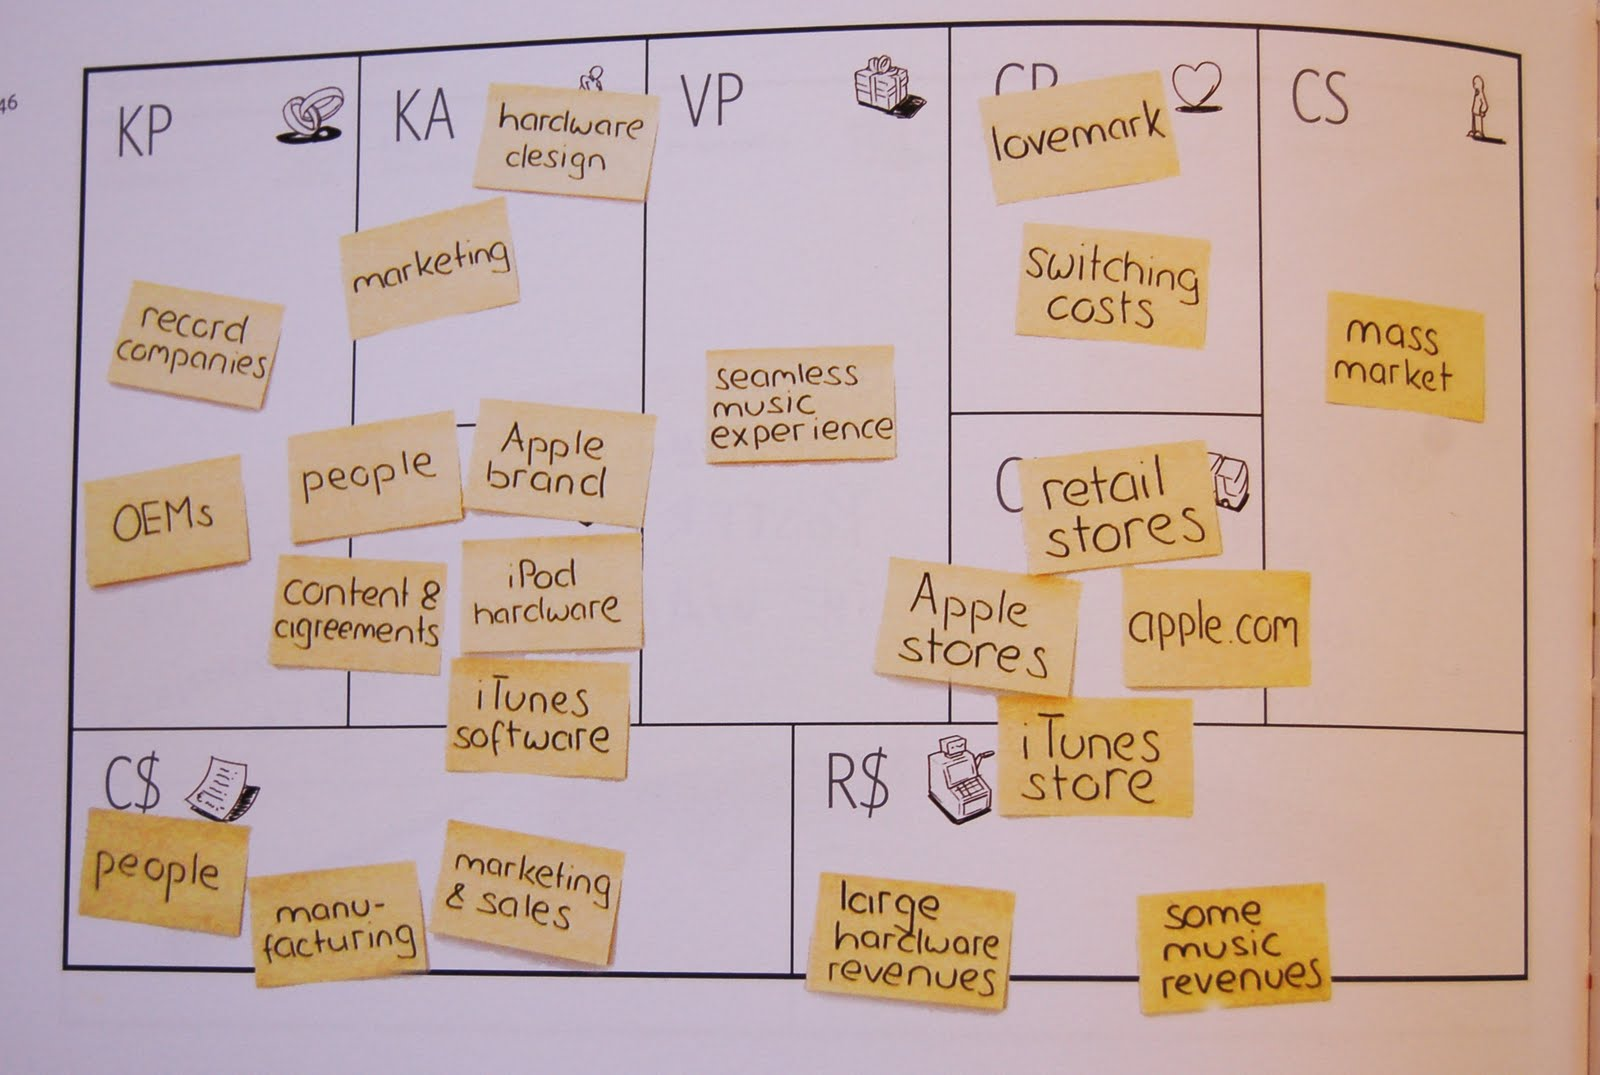 46
KP
KA
VP
CR
CS
hardware
design
marketing
record
companies
OEMs
people
Apple
brand
content &
agreements
iPod
hardware
iTunes
software
seamless
music
experience
lovemark
switching
costs
C
retail
stores
Apple
stores
apple.com
iTunes
store
mass
market
C$
people
manu-
facturing
marketing
& sales
R$
large
hardware
revenues
some
music
revenues